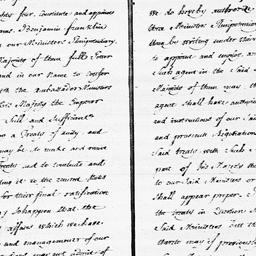 eighty four, constitute and appointed
Benjamin Franklin
our Ministers Plenipotentiary
Majority of them full Power
and in our Name to confer
with the Ambassador Ministers
his Majesty the Emperor
full and sufficient
a Treaty of Amity and
may be to make and receive
Treaty and to conclude and
it to the United States
for their final ratification
may so happen that the
affairs which we have
and management of our
may not admit of
We do hereby authorize
Ministers Plenipotentiary
them by writing under their
to appoint and employ
such agent in the said
Majority of them may
agent shall have authority
and instructions of our said
and prosecute Negotiations
said treaty with such
part of his Majesty the
to our said Ministers or
shall appear proper
the treaty in Question
said Ministers but the
thereto may if previously